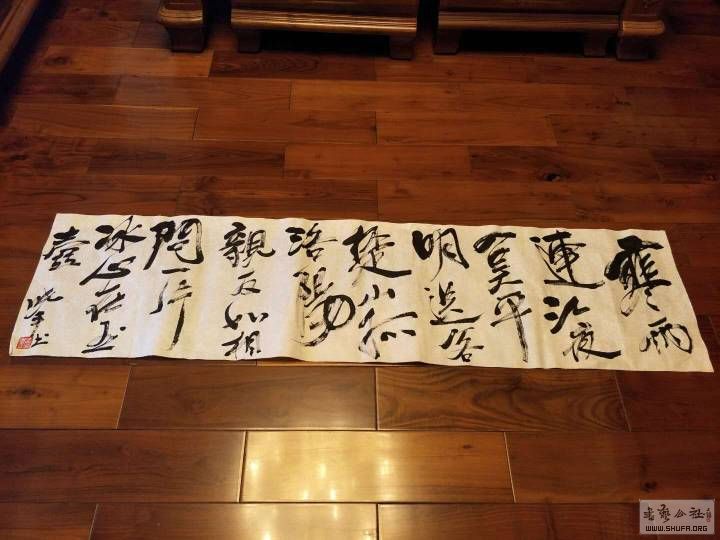 寒雨
連江夜
入吴平
明送客
楚山孤
洛陽
親友如相
問一片
冰心在玉
壺
书艺公社
WWW.SHUFA.ORG